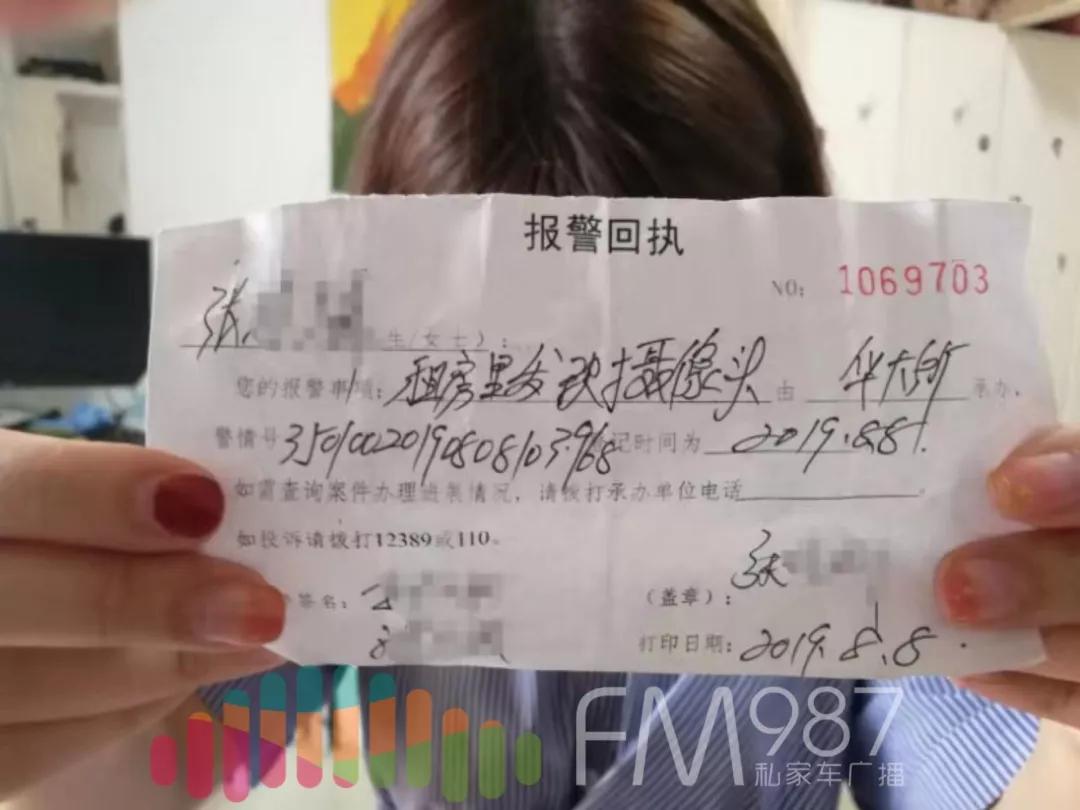 报警回执
NO: 1069703
张 生/女士）：
您的报警事项：租房里发现摄像头 由 华大所 承办，
警情号 35010020190808103968 登记时间为 2019.8.8.
如需查询案件办理进展情况，请拨打承办单位电话
如投诉请拨打12389或110。
签名： （盖章）：张
打印日期：2019.8.8.
FM987
私家车广播